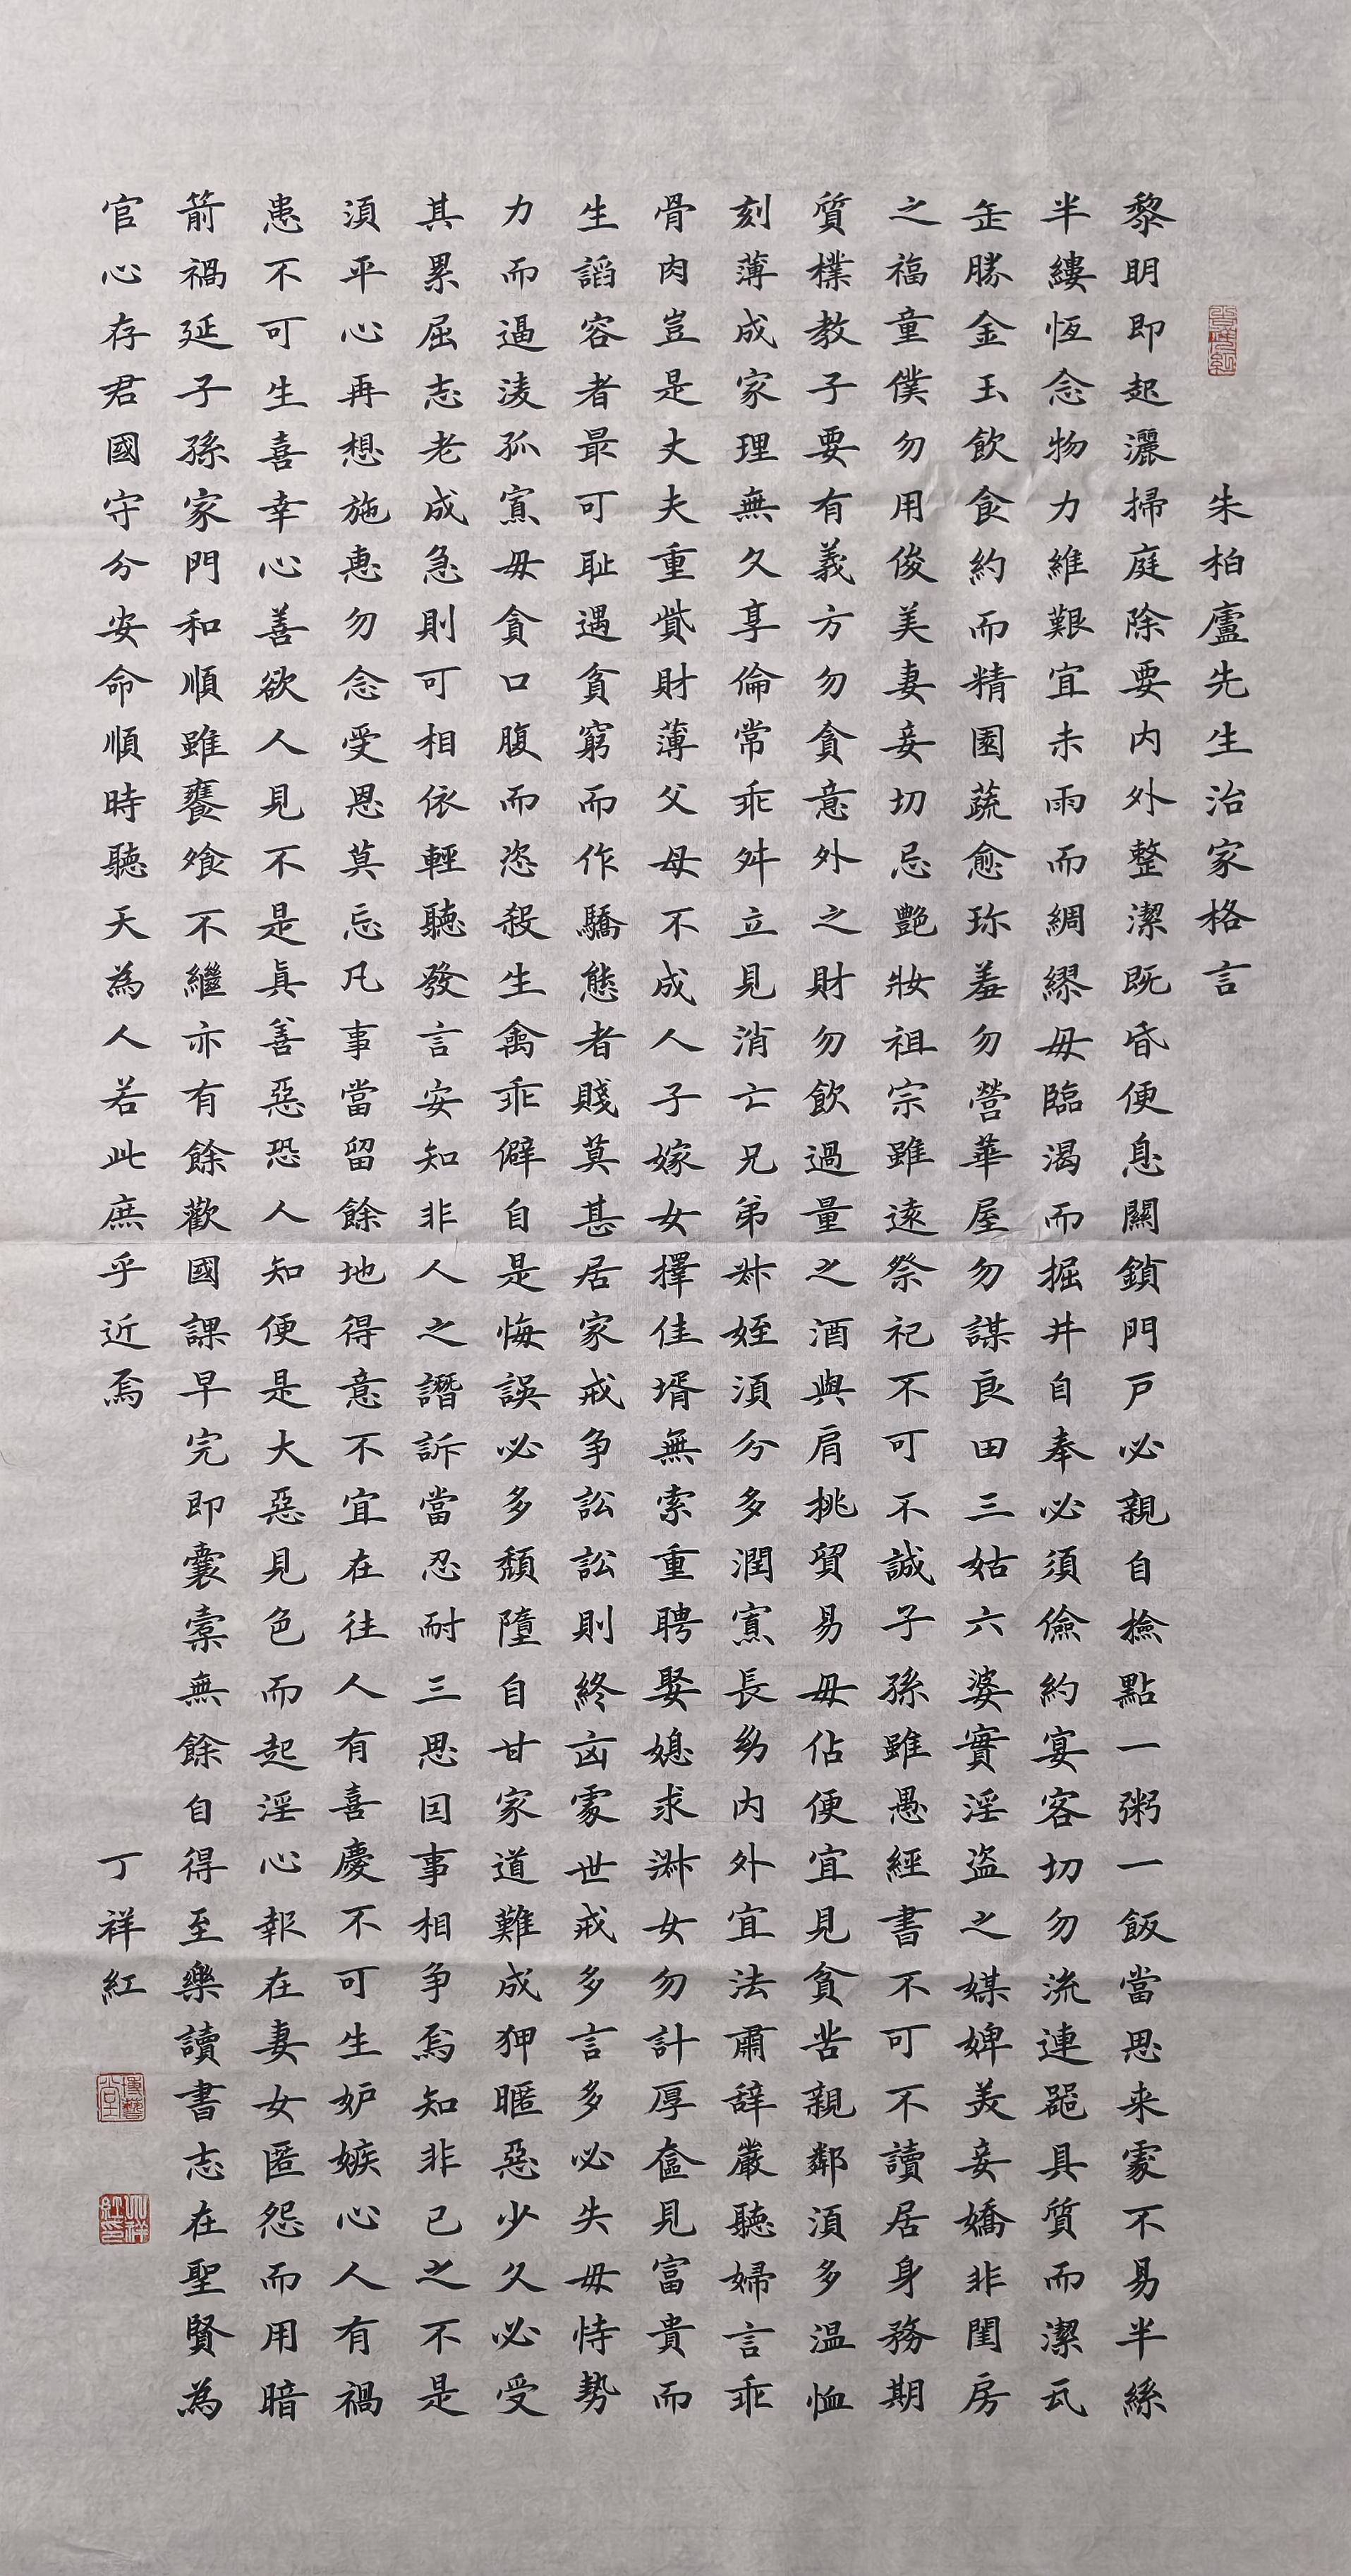 朱柏廬先生治家格言
黎明即起灑掃庭除要内外整潔既昏便息關鎖門戶必親自撿點一粥一飯當思来處不易半絲
半縷恆念物力維艱宜未雨而綢繆毋臨渴而掘井自奉必須儉約宴客切勿流連器具質而潔瓦
缶勝金玉飲食約而精園蔬愈珎羞勿營華屋勿謀良田三姑六婆實淫盗之媒婢美妾嬌非閨房
之福童僕勿用俊美妻妾切忌艷妝祖宗雖遠祭祀不可不誠子孫雖愚經書不可不讀居身務期
質樸教子要有義方勿貪意外之財勿飲過量之酒與肩挑貿易毋佔便宜見貧苦親鄰須多温恤
刻薄成家理無久享倫常乖舛立見消亡兄弟叔姪須分多潤寡長幼内外宜法肅辭嚴聽婦言乖
骨肉豈是丈夫重貲財薄父母不成人子嫁女擇佳壻無索重聘娶媳求淑女勿計厚奩見富貴而
生謟容者最可耻遇貧窮而作驕態者賤莫甚居家戒争訟訟則終凶處世戒多言多必失毋恃勢
力而逼淩孤寡毋貪口腹而恣殺生禽乖僻自是悔誤必多頹隳自甘家道難成狎暱惡少久必受
其累屈志老成急則可相依輕聽發言安知非人之譖訴當忍耐三思因事相争焉知非己之不是
須平心再想施惠勿念受恩莫忘凡事當留餘地得意不宜在往人有喜慶不可生妒嫉心人有禍
患不可生喜幸心善欲人見不是真善惡恐人知便是大惡見色而起淫心報在妻女匿怨而用暗
箭禍延子孫家門和順雖饔飧不繼亦有餘歡國課早完即囊橐無餘自得至樂讀書志在聖賢為
官心存君國守分安命順時聽天為人若此庶乎近焉
丁祥紅